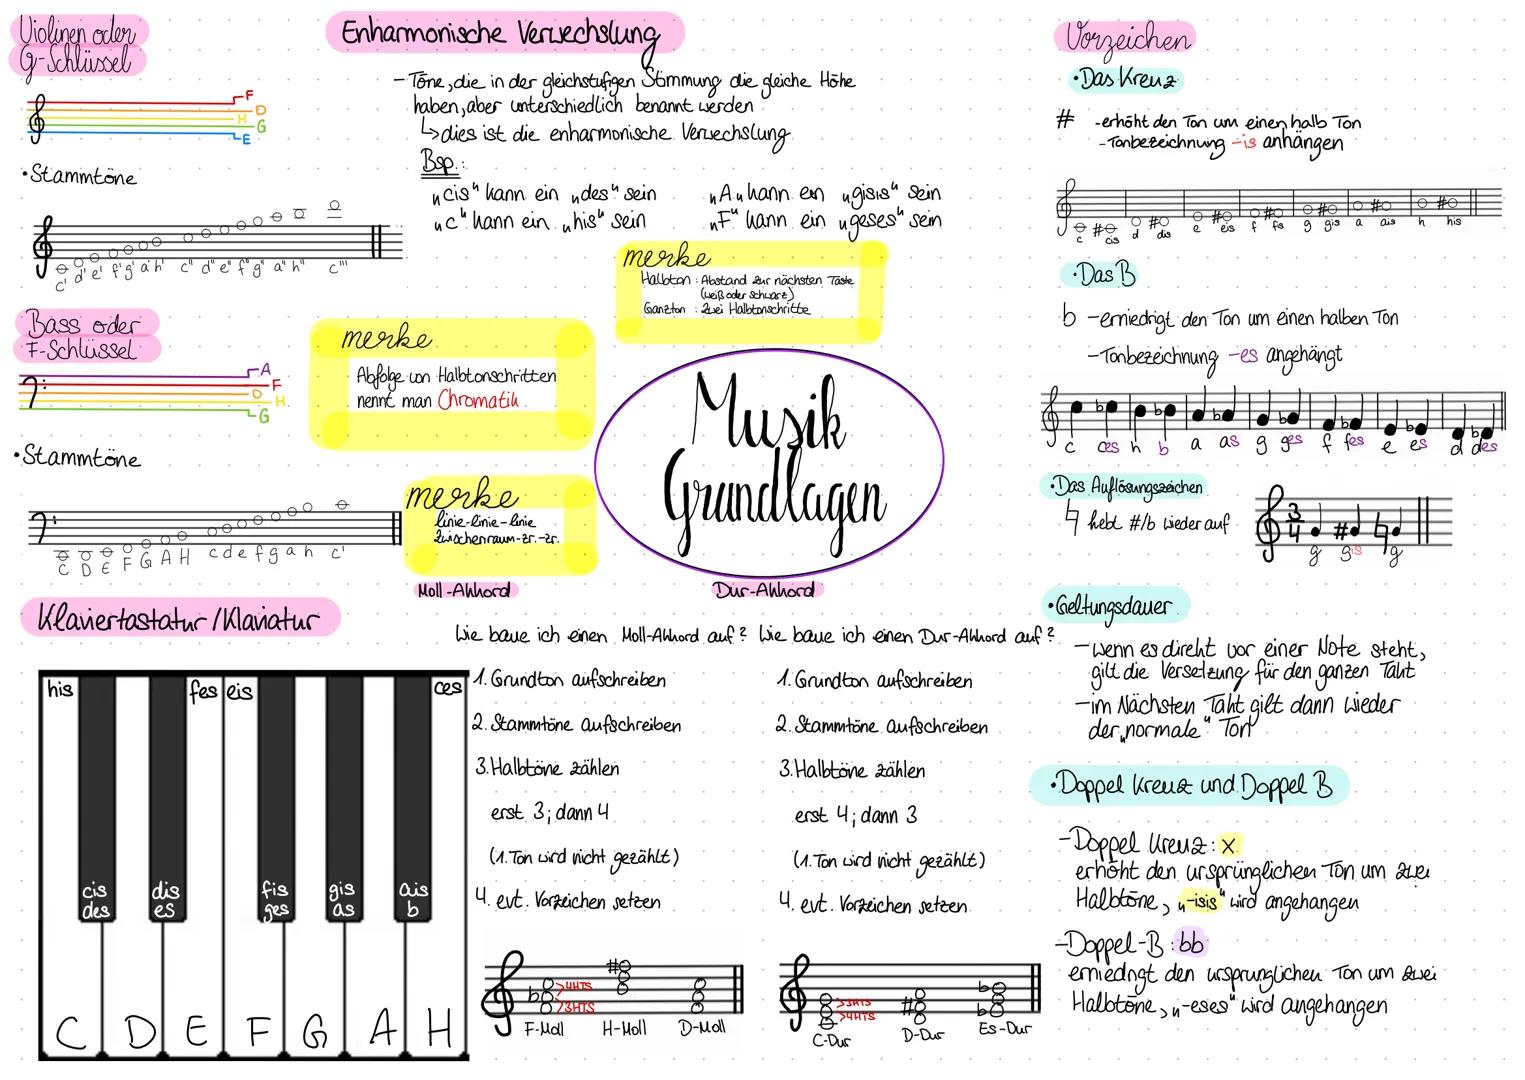 Violinen oder
G-Schlüssel
F
D
H
G
E
•Stammtöne
c' d' e' f' g' a' h' c'' d'' e'' f'' g'' a'' h'' c'''
Bass oder
F-Schlüssel
A
F
D
H
G
•Stammtöne
C D E F G A H c d e f g a h c'
Enharmonische Verwechslung
-Töne, die in der gleichstufigen Stimmung die gleiche Höhe
haben, aber unterschiedlich benannt werden
↳dies ist die enharmonische Verwechslung
Bsp.:
"cis" kann ein "des" sein
"c" kann ein "his" sein
"A" kann ein "gisis" sein
"F" kann ein "geses" sein
merke
Halbton : Abstand zur nächsten Taste
(weiß oder schwarz)
Ganzton : zwei Halbtonschritte
merke
Abfolge von Halbtonschritten
nennt man Chromatik
merke
linie-linie-linie
zwischenraum-zr.-zr.
Musik
Grundlagen
Klaviertastatur/Klaviatur
his fes eis ces
cis dis fis gis ais
des es ges as b
C D E F G A H
Moll-Akkord
Wie baue ich einen Moll-Akkord auf?
1. Grundton aufschreiben
2. Stammtöne aufschreiben
3. Halbtöne zählen
erst 3; dann 4
(1. Ton wird nicht gezählt)
4. evt. Vorzeichen setzen
>4HTS
>3HTS
F-Moll H-Moll D-Moll
Dur-Akkord
Wie baue ich einen Dur-Akkord auf?
1. Grundton aufschreiben
2. Stammtöne aufschreiben
3. Halbtöne zählen
erst 4; dann 3
(1. Ton wird nicht gezählt)
4. evt. Vorzeichen setzen
>3HTS
>4HTS
C-Dur D-Dur Es-Dur
Vorzeichen
•Das Kreuz
# -erhöht den Ton um einen halb Ton
-Tonbezeichnung -is anhängen
c cis d dis e eis f fis g gis a ais h his
•Das B
b -erniedrigt den Ton um einen halben Ton
-Tonbezeichnung -es angehängt
c ces h b a as g ges f fes e es d des
•Das Auflösungszeichen
♮ hebt #/b wieder auf
3
4
g gis g
•Geltungsdauer
-wenn es direkt vor einer Note steht,
gilt die Versetzung für den ganzen Takt
-im Nächsten Takt gilt dann wieder
der "normale" Ton
•Doppel Kreuz und Doppel B
-Doppel Kreuz: x
erhöht den ursprünglichen Ton um zwei
Halbtöne, "-isis" wird angehangen
-Doppel-B: bb
erniedrigt den ursprünglichen Ton um zwei
Halbtöne, "-eses" wird angehangen